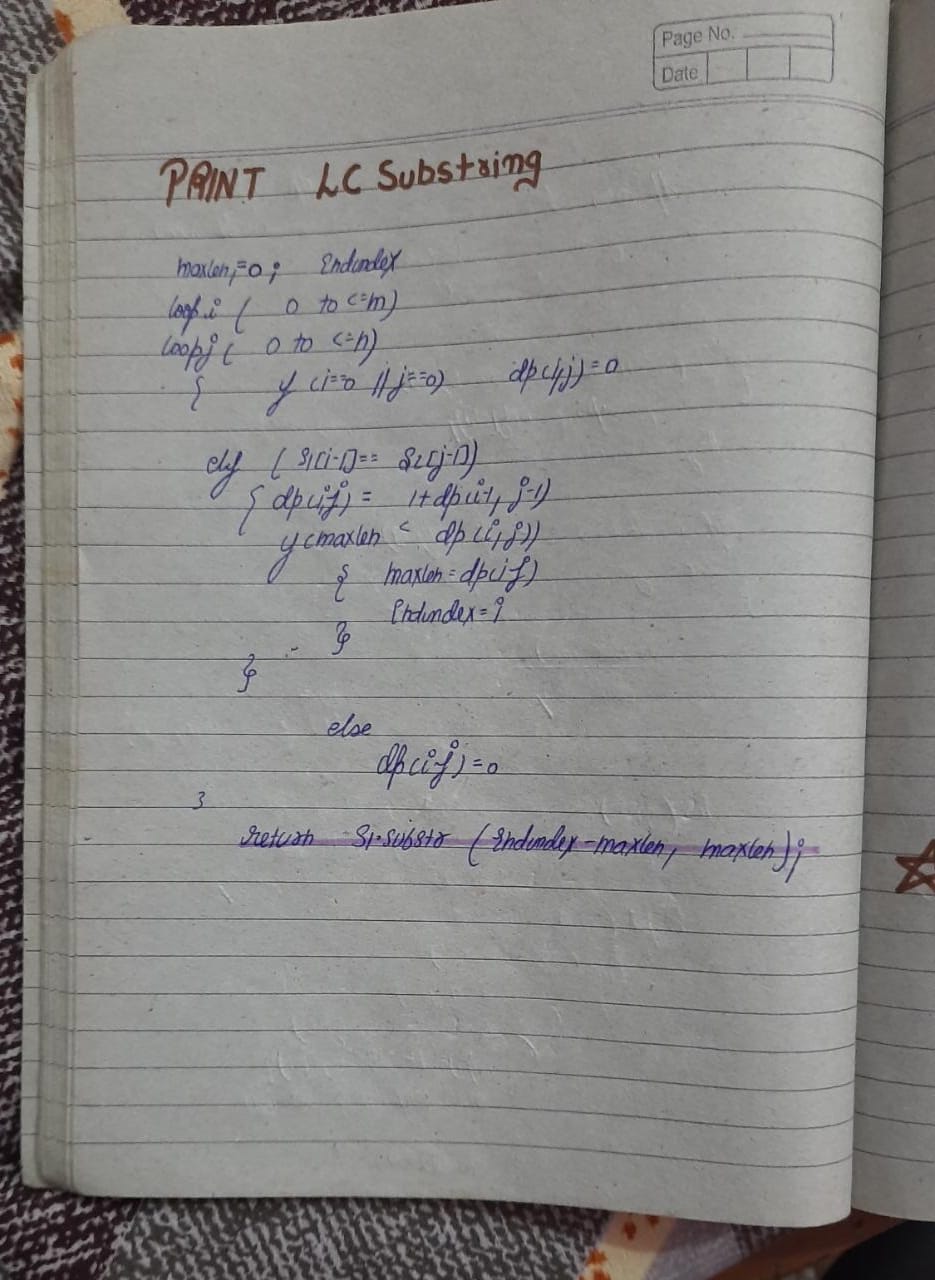 Page No.
Date
PRINT LC Substring
maxlen=0; Endindex
loop i ( 0 to <=m)
loop j ( 0 to <=n)
{ if (i==0 || j==0) dp(i,j)=0
elif (S1[i-1]== S2[j-1])
{ dp(i,j) = 1+dp(i-1, j-1)
if(maxlen < dp(i,j))
{ maxlen=dp(i,j)
Endindex=i
}
}
else
dp(i,j)=0
}
return S1.substr (Endindex-maxlen, maxlen);